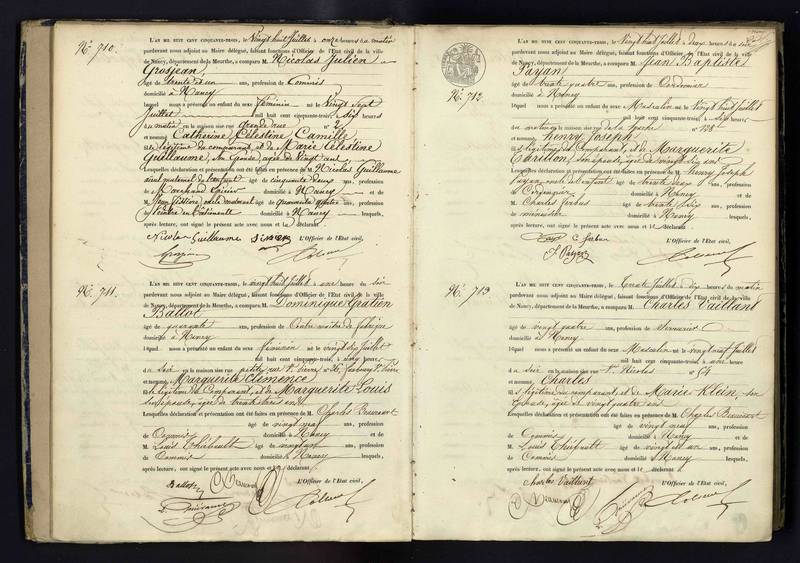 N.º 710.
L'AN MIL HUIT CENT CINQUANTE-TROIS, le Vingt huit Juillet à onze heures du matin
pardevant nous adjoint au Maire délégué, faisant fonctions d'Officier de l'Etat civil de la ville
de Nancy, département de la Meurthe, a comparu M. Nicolas Julien
Grosjean
âgé de trente deux ans, profession de Commis
domicilié à Nancy
lequel nous a présenté un enfant du sexe féminin né le Vingt sept
Juillet mil huit cent cinquante-trois, à six heures
du matin en la maison sise rue Grande rue n° 2
et nommé Catherine Célestine Camille,
fille légitime du comparant, et de Marie Célestine
Guillaume, son Epouse, âgée de Vingt ans
Lesquelles déclaration et présentation ont été faites en présence de M. Nicolas Guillaume
aïeul maternel de l'enfant âgé de cinquante deux ans, profession
de Marchand Epicier domicilié à Nancy et de
M. oncle maternel âgé de quarante quatre ans, profession
de Peintre en bâtiments domicilié à Nancy lesquels,
après lecture, ont signé le présent acte avec nous et le déclarant.
Nicolas Guillaume L'Officier de l'Etat civil,
Grosjean
N.º 711.
L'AN MIL HUIT CENT CINQUANTE-TROIS, le vingt huit Juillet à une heure du soir
pardevant nous adjoint au Maire délégué, faisant fonctions d'Officier de l'Etat civil de la ville
de Nancy, département de la Meurthe, a comparu M. Dominique Gratien
Ballot
âgé de quarante ans, profession de Contre maître de fabrique
domicilié à Nancy
lequel nous a présenté un enfant du sexe féminin né le vingt six Juillet
mil huit cent cinquante-trois, à cinq heures
du soir en la maison sise petite rue St Pierre n° 26, faubourg St Pierre
et nommé Marguerite Clémence
fille légitime du Comparant, et de Marguerite Louis
son épouse, âgée de trente trois ans
Lesquelles déclaration et présentation ont été faites en présence de M. Charles
âgé de vingt neuf ans, profession
de Commis domicilié à Nancy et de
M. Louis Thiébault âgé de vingt un ans, profession
de Commis domicilié à Nancy lesquels,
après lecture, ont signé le présent acte avec nous et le déclarant.
Ballot L'Officier de l'Etat civil,
N.º 712
L'AN MIL HUIT CENT CINQUANTE-TROIS, le Vingt huit Juillet à deux heures du soir
pardevant nous adjoint au Maire délégué, faisant fonctions d'Officier de l'Etat civil de la ville
de Nancy, département de la Meurthe, a comparu M. Jean Baptiste
Payan
âgé de trente quatre ans, profession de Cordonnier
domicilié à Nancy
lequel nous a présenté un enfant du sexe Masculin né le Vingt huit Juillet
mil huit cent cinquante-trois, à six heures
du matin en la maison sise rue n° 138
et nommé Henry Joseph,
fils légitime du Comparant, et de Marguerite
Carillon, son épouse, âgée de vingt six ans
Lesquelles déclaration et présentation ont été faites en présence de M. henry Joseph
Payan, oncle de l'enfant âgé de trente ans, profession
de Cordonnier domicilié à Nancy et de
M. Charles âgé de trente six ans, profession
de menuisier domicilié à Nancy lesquels,
après lecture, ont signé le présent acte avec nous et le déclarant.
L'Officier de l'Etat civil,
N.º 713
L'AN MIL HUIT CENT CINQUANTE-TROIS, le trente Juillet à dix heures du matin
pardevant nous adjoint au Maire délégué, faisant fonctions d'Officier de l'Etat civil de la ville
de Nancy, département de la Meurthe, a comparu M. Charles Vaillant
âgé de vingt quatre ans, profession de Serrurier
domicilié à Nancy
lequel nous a présenté un enfant du sexe Masculin né le vingt neuf Juillet
mil huit cent cinquante-trois, à une heure
du soir en la maison sise rue St Nicolas n° 64
et nommé Charles
fils légitime du comparant, et de Marie Klein, son
Epouse, âgée de vingt quatre ans
Lesquelles déclaration et présentation ont été faites en présence de M. Charles
âgé de vingt neuf ans, profession
de Commis domicilié à Nancy et de
M. Louis Thiébault âgé de vingt un ans, profession
de Commis domicilié à Nancy lesquels,
après lecture, ont signé le présent acte avec nous et le déclarant.
Charles Vaillant
L'Officier de l'Etat civil,